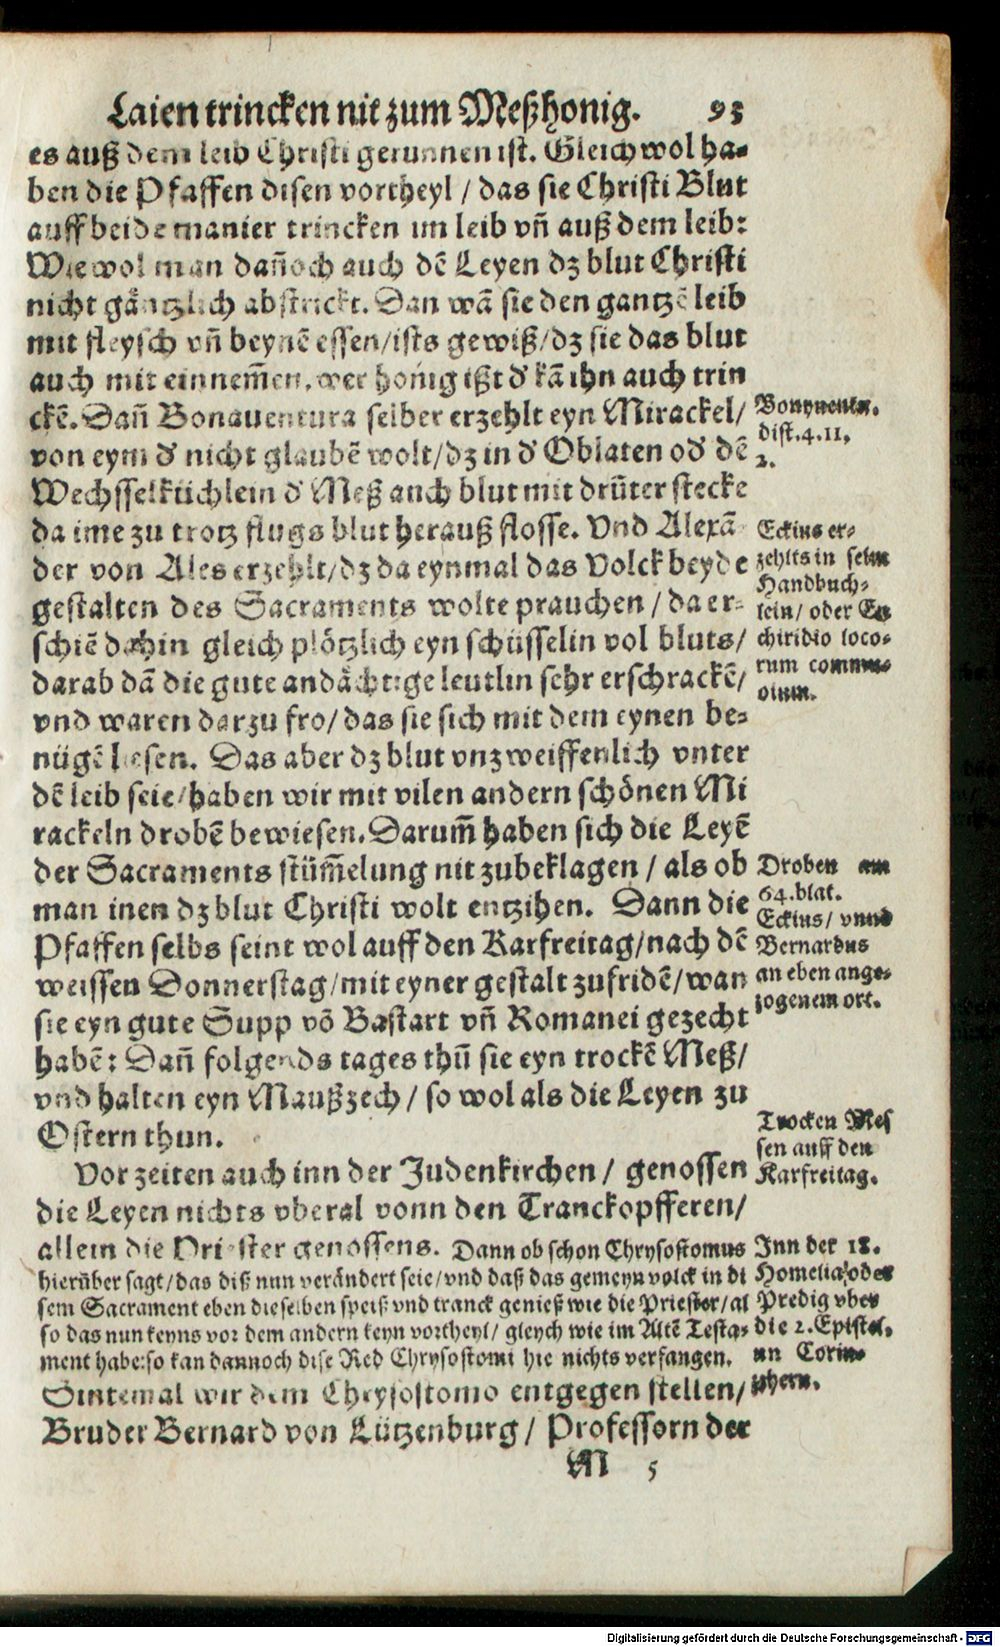 Laien trincken nit zum Meßhonig. 93
es auß dem leib Christi gerunnen ist. Gleich wol ha-
ben die Pfaffen disen vortheyl / das sie Christi Blut
auff beide manier trincken im leib vñ auß dem leib:
Wie wol man dañoch auch dẽ Leyen dz blut Christi
nicht gäntzlich abstrickt. Dan wã sie den gantzẽ leib
mit fleysch vñ beynẽ essen/ists gewiß/dz sie das blut
auch mit einnem̃en, wer honig ißt d' kã ihn auch trin
ckẽ. Dañ Bonauentura selber erzehlt eyn Mirackel/
von eym d' nicht glaubẽ wolt/dz in d' Oblaten od' dẽ
Wechsselküchlein d' Meß auch blut mit drũter stecke
da ime zu trotz flugs blut herauß flosse. Vnd Alexã
der von Ales erzehlt/dz da eynmal das Volck beyde
gestalten des Sacraments wolte prauchen / da er-
schiẽ dahin gleich plötzlich eyn schüsselin vol bluts/
darab dã die gute andächtige leutlin sehr erschrackẽ/
vnd waren darzu fro/das sie sich mit dem eynen be-
nügẽ liesen. Das aber dz blut vnzweiffenlich vnter
dẽ leib seie/haben wir mit vilen andern schönen Mi
rackeln drobẽ bewiesen. Darum̃ haben sich die Leyẽ
der Sacraments stüm̃elung nit zubeklagen / als ob
man inen dz blut Christi wolt entzihen. Dann die
Pfaffen selbs seint wol auff den Karfreitag/nach dẽ
weissen Donnerstag/mit eyner gestalt zufridẽ/wan
sie eyn gute Supp võ Bastart vñ Romanei gezecht
habẽ: Dañ folgends tages thũ sie eyn trockẽ Meß/
vnd halten eyn Maußzech / so wol als die Leyen zu
Ostern thun.
Vor zeiten auch inn der Judenkirchen / genossen
die Leyen nichts vberal vonn den Tranckopfferen/
allein die Priester genossens. Dann ob schon Chrysostomus
hierüber sagt/das diß nun verändert seie/vnd daß das gemeyn volck in di
sem Sacrament eben dieselben speiß vnd tranck genieß wie die Priester/al
so das nun keyns vor dem andern keyn vortheyl/ gleych wie im Altẽ Testa-
ment habe:so kan dannoch dise Red Chrysostomi hie nichts verfangen.
Sintemal wir dem Chrysostomo entgegen stellen/
Bruder Bernard von Lützenburg / Professorn der
M 5
dist.4.11.
2.
Eckius er-
zehlts in seim
Handbuch-
lein/ oder En
chiridio loco-
rum commu-
nium.
Droben am
64.blat.
Eckius/ vnnd
Bernardus
an eben ange-
zogenem ort.
Trocken Mes
sen auff den
Karfreitag.
Inn der 18.
Homelia/oder
Predig vber
die 2.Epistel.
an Corin-
thern.
Digitalisierung gefördert durch die Deutsche Forschungsgemeinschaft - DFG